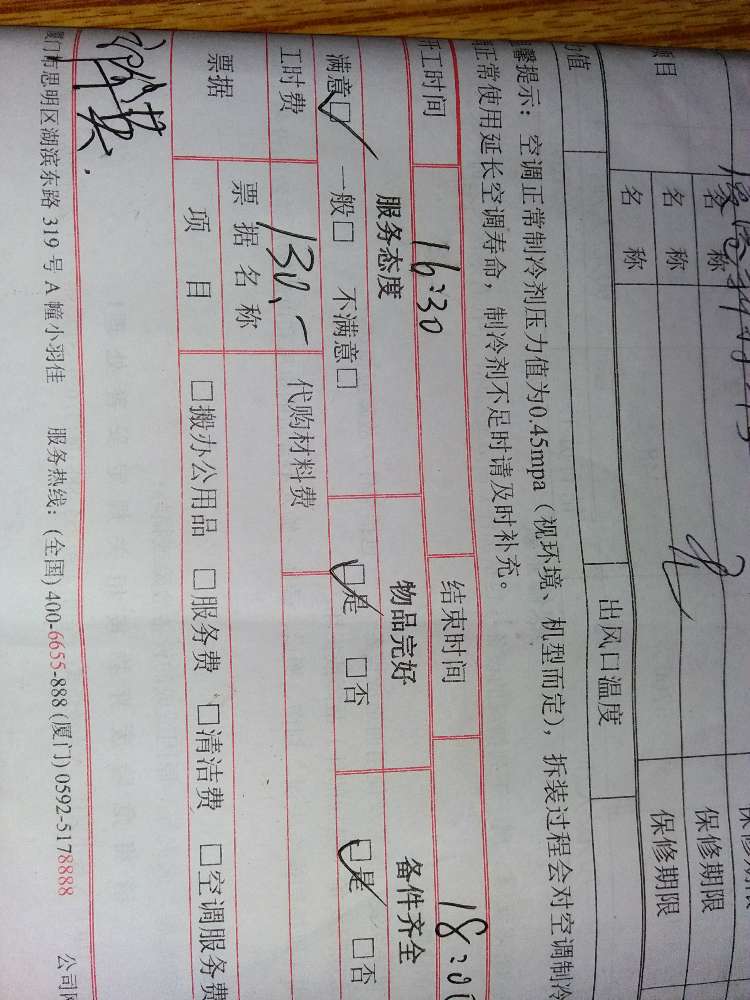 名 称
名 称 保修期限
名 称 保修期限
出风口温度
馨提示：空调正常制冷剂压力值为0.45mpa（视环境、机型而定），拆装过程会对空调制冷
正常使用延长空调寿命，制冷剂不足时请及时补充。
工时间 16:30 结束时间 18:00
服务态度 物品完好 备件齐全
满意□ 一般□ 不满意□ □是 □否 □是 □否
工时费 130.- 代购材料费
票据 票 据 名 称
项 目 □搬办公用品 □服务费 □清洁费 □空调服务费
门市思明区湖滨东路 319 号 A 幢小羽佳 服务热线：(全国) 400-6655-888 (厦门) 0592-5178888 公司网